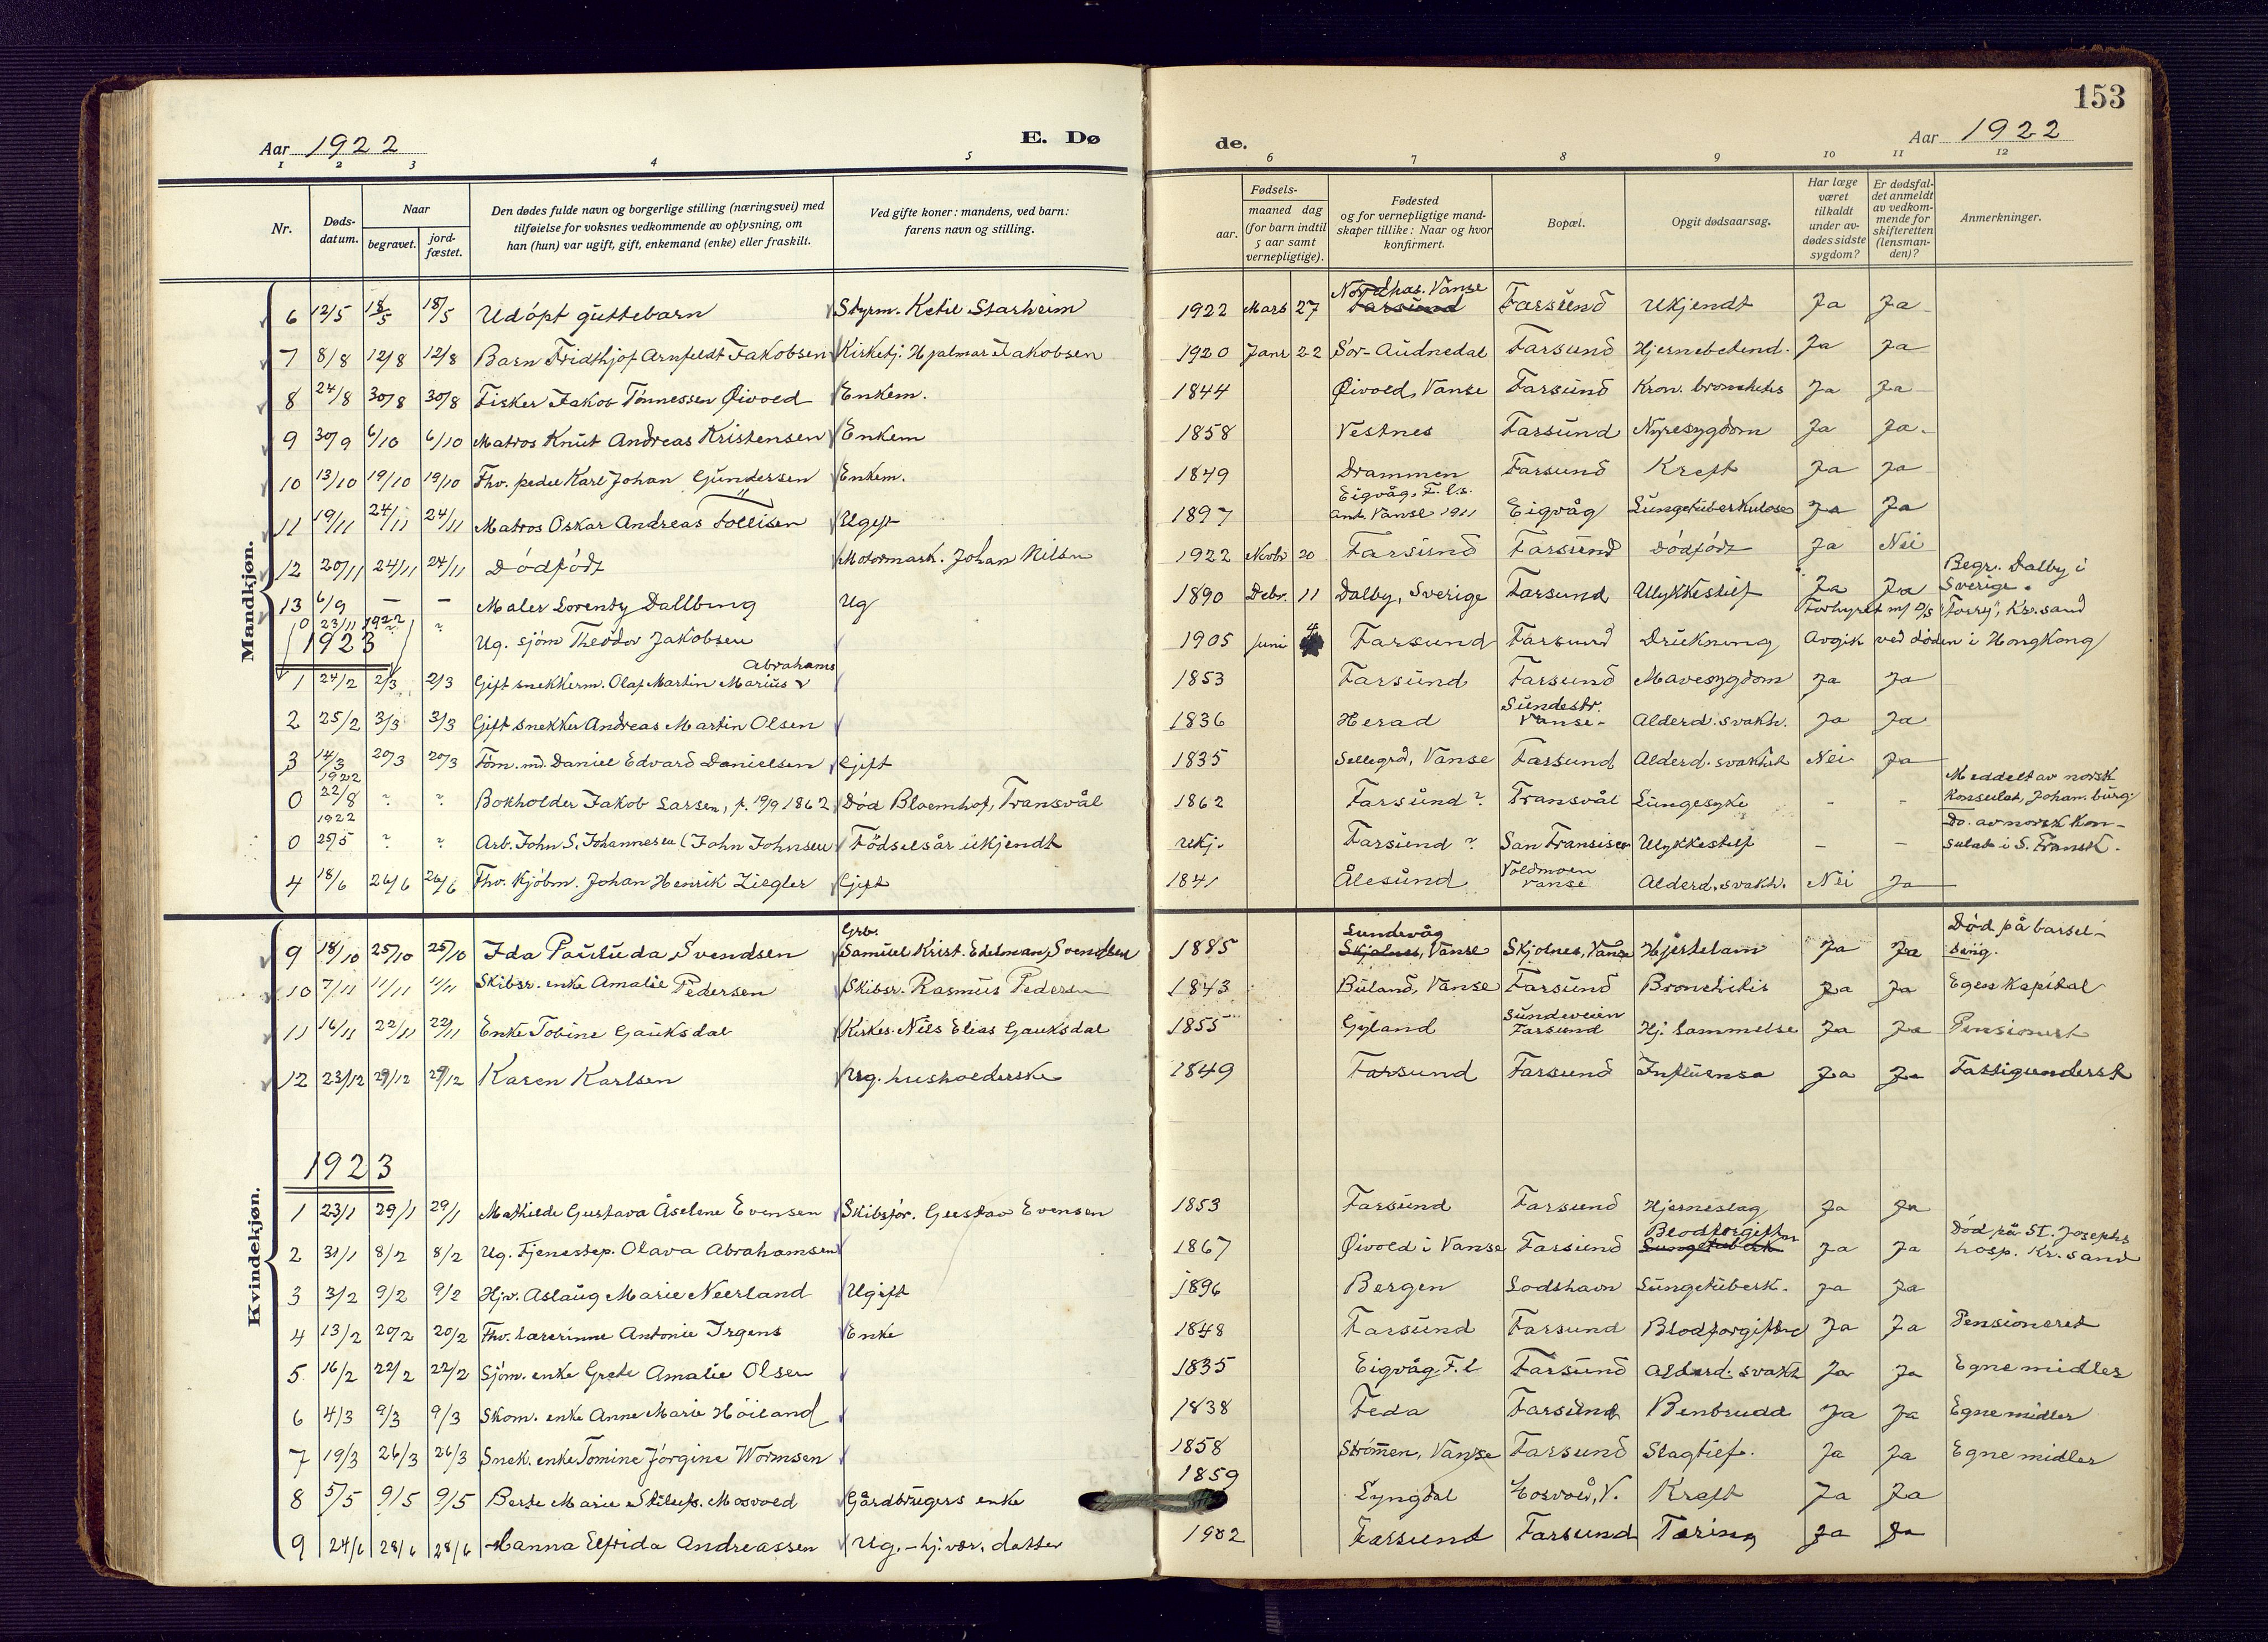 153
Aar 1922 E. Dø de. Aar 1922
1 2 3 4 5 6 7 8 9 10 11 12
Nr. Døds-datum. Naar begravet. jord-fæstet. Den dødes fulde navn og borgerlige stilling (næringsvei) med tilføielse for voksnes vedkommende av oplysning, om han (hun) var ugift, gift, enkemand (enke) eller fraskilt. Ved gifte koner: mandens, ved barn: farens navn og stilling. Fødsels- aar. maaned dag (for barn indtil 5 aar samt vernepligtige). Fødested og for vernepligtige mand-skaper tillike: Naar og hvor konfirmert. Bopæl. Opgit dødsaarsag. Har læge været tilkaldt under av-dødes sidste sygdom? Er dødsfal-det anmeldt av vedkom-mende for skifteretten (lensman-den)? Anmerkninger.
Mandkjøn.
6 12/5 18/5 18/5 Udöpt guttebarn Styrm. Ketil Starheim 1922 Mars 27 Nordhas. Vanse Farsund Farsund Ukjendt Ja Ja
7 8/8 12/8 12/8 Barn Fridthjof Arnfeldt Jakobsen Kirketj. Hjalmar Jakobsen 1920 Janr 22 Sör-Audnedal Farsund Hjernebetend. Ja Ja
8 24/8 30/8 30/8 Fisker Jakob Tönnessen Øivold Enkem. 1844 Øivold, Vanse Farsund Kron. bronchitis Ja Ja
9 30/9 6/10 6/10 Matros Knut Andreas Kristensen Enkem 1858 Vestnes Farsund Nyresygdom Ja Ja.
10 13/10 19/10 19/10 Fhv. pedel Karl Johan Gundersen Enkem. 1849 Drammen Farsund Kreft Ja Ja
11 19/11 24/11 24/11 Matros Oskar Andreas Follisen Ugift 1897 Eigvåg, F. l.s. ant. Vanse 1911 Eigvåg Lungetuberkulose Ja Ja
12 20/11 24/11 24/11 Dödfödt Motormask. Johan Nilsen 1922 Novbr 20 Farsund Farsund Dödfödt Ja Nei
13 6/9 – – Maler Lorenty Dallbring Ug 1890 Debr. 11 Dalby, Sverige Farsund Ulykkestilf Ja Ja Begr. Dalby i Sverige.
0 23/11 1922 ? ? Ug. sjöm Theodor Jakobsen 1905 Juni 4 Farsund Farsund Drukning Forhyret m/ D/S "Torry", Kr.sand Avgik ved döden i HongKong
1923
1 24/2 2/3 2/3 Gift snekkerm. Olaf Martin Marius Abrahams 1853 Farsund Farsund Mavesygdom Ja Ja
2 25/2 3/3 3/3 Gift snekker Andreas Martin Olsen 1836 Herad Sundestr. Vanse Alderd. svakh. Ja Ja
3 14/3 20/3 20/3 Töm. md. Daniel Edvard Danielsen Gift 1835 Sellegrd, Vanse Farsund Alderd. svakhet Nei Ja
0 1922 22/8 ? ? Bokholder Jakob Larsen, f. 19/9 1862 Död Bloemhof, Transvål 1862 Farsund? Transvål Lungesyke - - Meddelt av norsk Konsulat, Johan.burg.
0 1922 25/5 ? ? Arb. John S. Johannesen (John Johnsen Födselsår ukjendt ukj. Farsund? San Fransisco Ulykkestilf – – Do. av norsk Kon-sulat i S. Fransk.
4 18/6 26/6 26/6 Fhv. Kjöbm. Johan Henrik Ziegler Gift 1841 Ålesund Voldmoen Vanse Alderd. svakh. Nei Ja
Kvindekjøn.
9 18/10 25/10 25/10 Ida Pauluda Svendsen Grb. Samuel Krist. Edelman Svendsen 1885 Lundevåg Skjolnes, Vanse Skjolnes, Vanse Hjertelam Ja Ja Död på barsel-seng.
10 7/11 11/11 11/11 Skibsr. enke Amalie Pedersen Skibsr. Rasmus Pedersen 1843 Buland, Vanse Farsund Bronchitis Ja Ja Egen Kapital
11 16/11 22/11 22/11 Enke Tobine Gauksdal Kirkes. Nils Elias Gauksdal 1855 Gyland Sundeveien Farsund Hj. Lammelse Ja Ja Pensionert
12 23/12 29/12 29/12 Karen Karlsen Ug. husholderske 1849 Farsund Farsund Influensa Ja Ja Fattigunderst
1923
1 23/1 29/1 29/1 Mathilde Gustava Åselene Evensen Skibsför. Gustav Evensen 1853 Farsund Farsund Hjerneslag Ja Ja
2 31/1 8/2 8/2 Ug. Tjenestep. Olava Abrahamsen 1867 Øivold i Vanse Farsund Blodforgiftn Lungetuberk Ja Ja Död på St. Josephs hosp. Kr.sand
3 3/2 9/2 9/2 Hjv. Aslaug Marie Neerland Ugift 1896 Bergen Lodshavn Lungetuberk. Ja Ja
4 13/2 20/2 20/2 Fhv. lærerinne Antonie Irgens Enke 1848 Farsund Farsund Blodforgiftn Ja Ja Pensioneret
5 16/2 22/2 22/2 Sjöm. enke Grete Amalie Olsen 1835 Eigvåg F.l Farsund Alderd. svakh Ja Ja Egne midler
6 4/3 9/3 9/3 Skom. enke Anne Marie Höiland 1838 Feda Farsund Benbrudd Ja Ja Egne midler
7 19/3 26/3 26/3 Snek. enke Tomine Jörgine Wormsen 1858 Strömen, Vanse Farsund Slagtilf. Ja Ja Egne midler
8 5/5 9/5 9/5 Berte Marie Mosvold Gårdbrugers enke 1859 Lyngdal Mosvold, V. Kreft Ja Ja
9 24/6 28/6 28/6 Hanna Elfrida Andreassen Ug. – hj.vær. datter 1902 Farsund Farsund Tæring Ja Ja